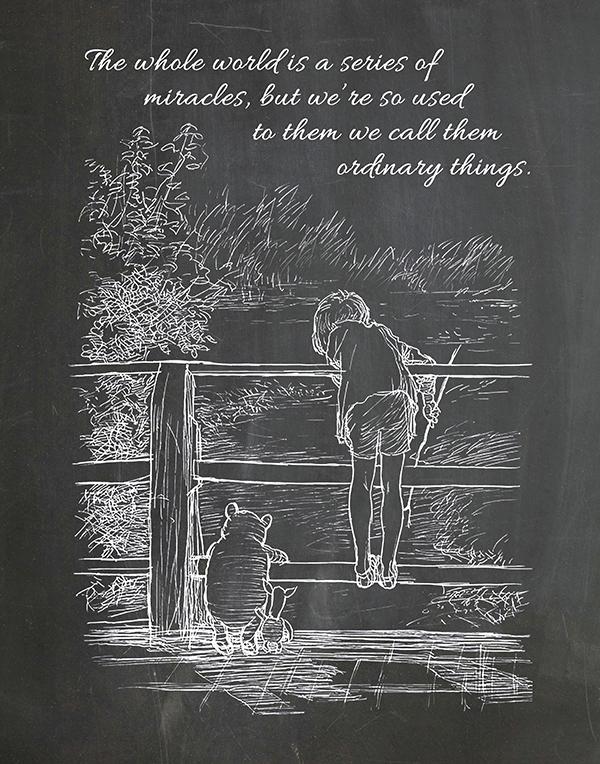 The whole world is a series of
miracles, but we're so used
to them we call them
ordinary things.